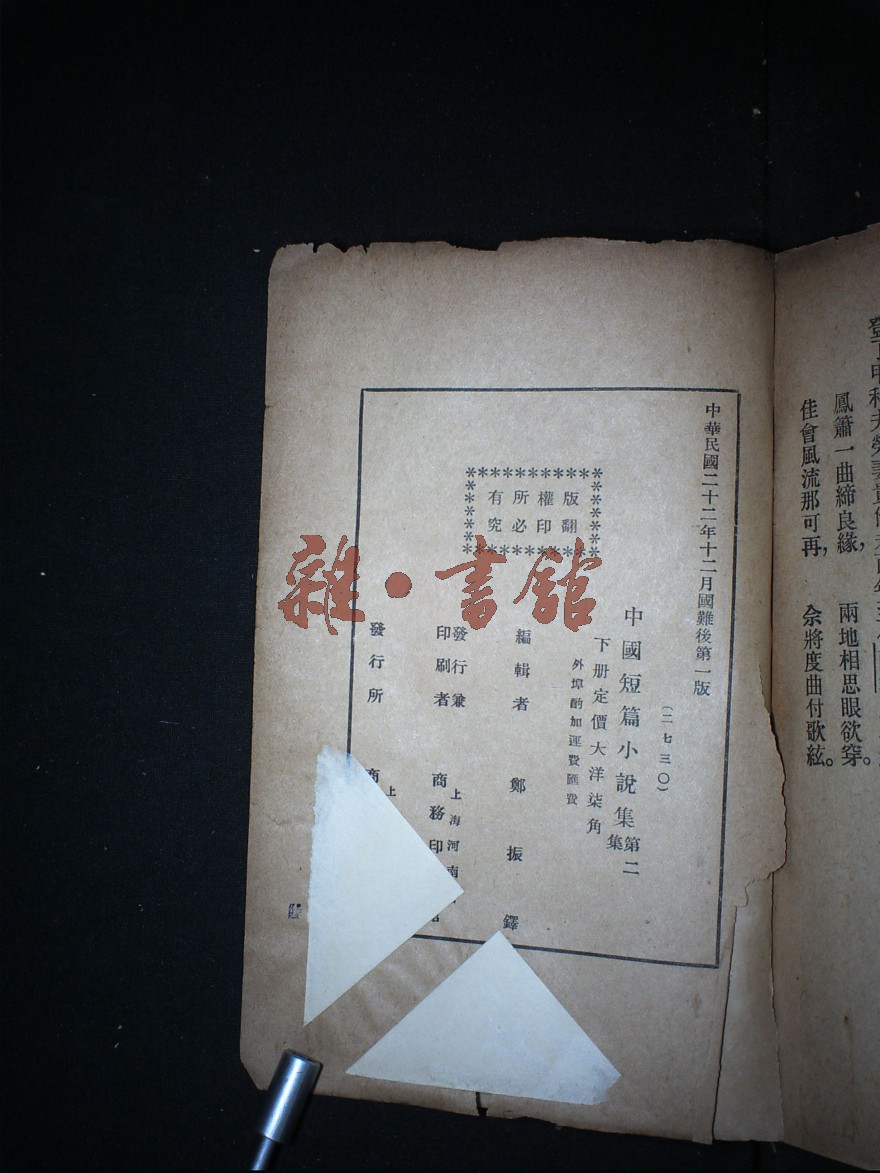 鳳簫一曲締良緣，　兩地相思眼欲穿。
佳會風流那可再，　余將度曲付歌絃。
中華民國二十二年十二月國難後第一版
（二七三〇）
中國短篇小說集第二集
下册定價大洋柒角
外埠酌加運費匯費
版權所有
翻印必究
編輯者　鄭振鐸
發行兼印刷者　上海河南
商務印
發行所　上
商
雜·書館